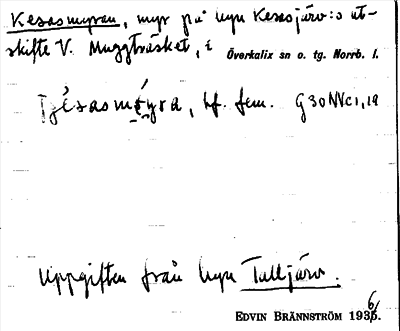 Kesasmyran, myr på hyn Kesasjärv:s ut-
skifte V. Muggträsket, i Överkalix sn o. tg. Norrb. l.
bf. fem. G30NVc1,19
Uppgiften från hyn Talljärv.
EDVIN BRÄNNSTRÖM 1936.